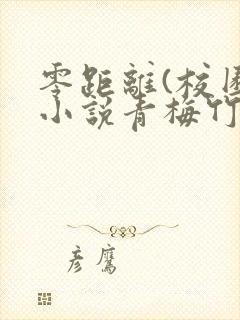 零距離(校園
小說青梅竹
彥鷹